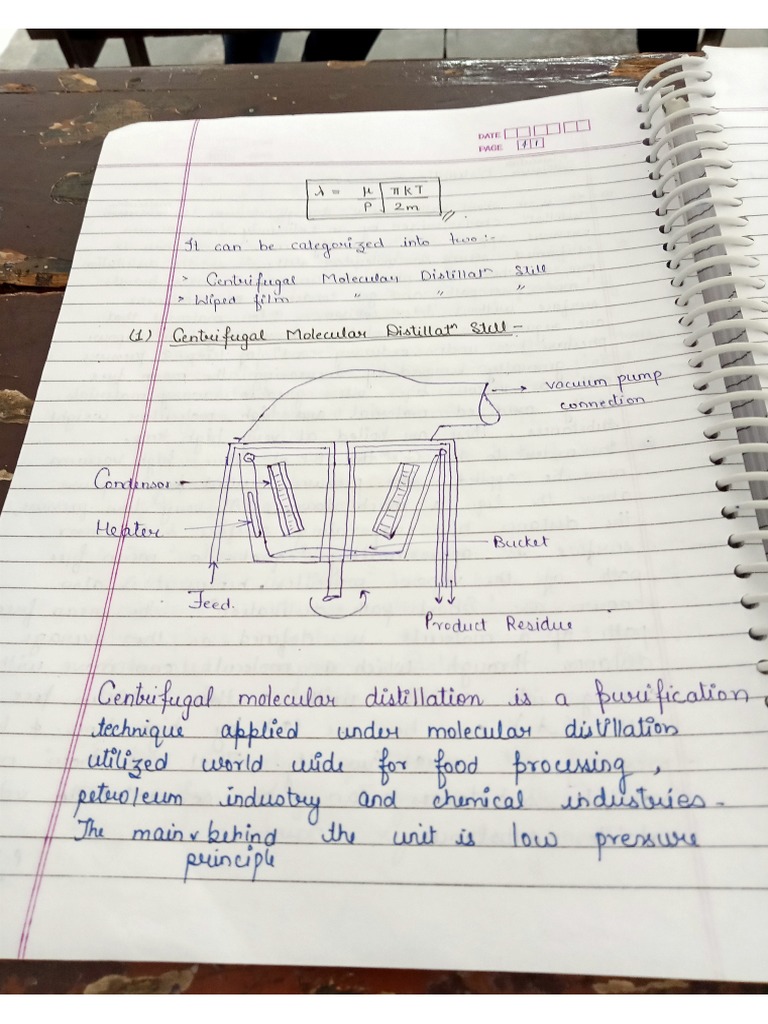 DATE
PAGE 11
λ = μ/P √(πKT/2m)
It can be categorized into two:-
> Centrifugal Molecular Distillatⁿ Still
> Wiped film " " "
(1) Centrifugal Molecular Distillatⁿ Still -
vacuum pump
connection
Condensor
Heater
Bucket
Feed.
Product Residue
Centrifugal molecular distillation is a purification
technique applied under molecular distillation
utilized world wide for food processing,
petroleum industry and chemical industries.
The main behind the unit is low pressure
principle